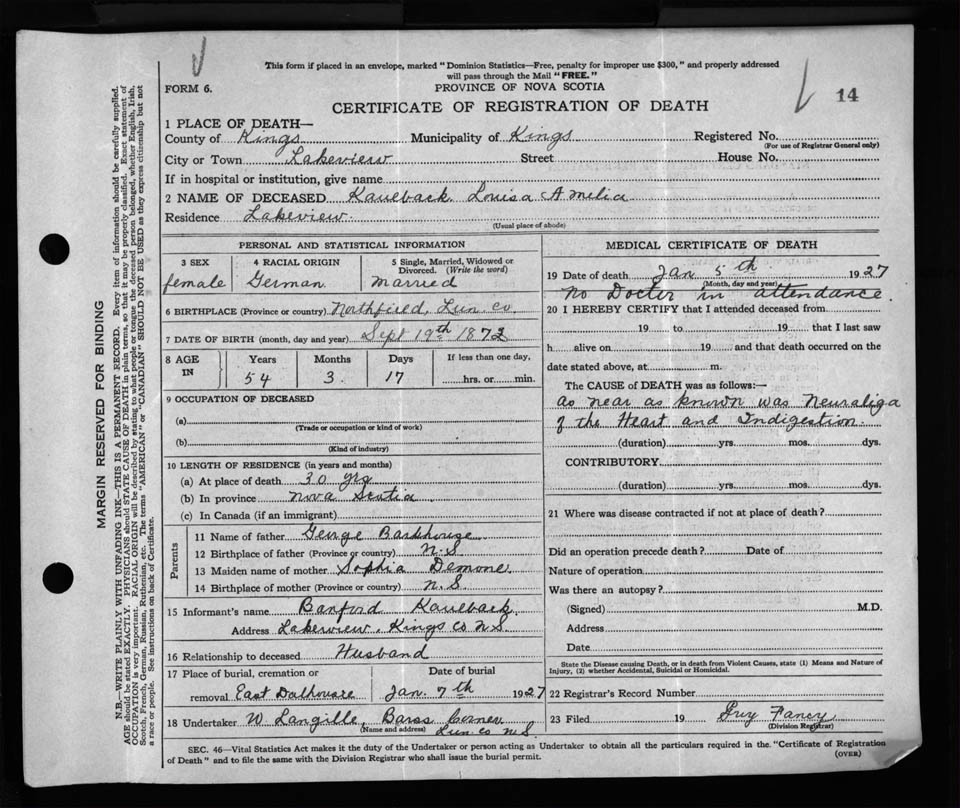 This form if placed in an envelope, marked "Dominion Statistics—Free, penalty for improper use $300," and properly addressed
will pass through the Mail "FREE."
FORM 6.
PROVINCE OF NOVA SCOTIA
14
CERTIFICATE OF REGISTRATION OF DEATH
1 PLACE OF DEATH—
County of Kings Municipality of Kings Registered No.
(For use of Registrar General only)
City or Town Lakeview Street House No.
If in hospital or institution, give name
2 NAME OF DECEASED Kaulback Louisa Amelia
Residence Lakeview
(Usual place of abode)
PERSONAL AND STATISTICAL INFORMATION
3 SEX 4 RACIAL ORIGIN 5 Single, Married, Widowed or Divorced. (Write the word)
female German Married
6 BIRTHPLACE (Province or country) Northfield, Lun. Co.
7 DATE OF BIRTH (month, day and year) Sept 19th 1872
8 AGE IN Years Months Days If less than one day,
54 3 17 hrs. or min.
9 OCCUPATION OF DECEASED
(a)
(Trade or occupation or kind of work)
(b)
(Kind of industry)
10 LENGTH OF RESIDENCE (in years and months)
(a) At place of death 30 yrs
(b) In province Nova Scotia
(c) In Canada (if an immigrant)
Parents
11 Name of father George Barkhouse
12 Birthplace of father (Province or country) N.S
13 Maiden name of mother Sophia Demone
14 Birthplace of mother (Province or country) N.S
15 Informant's name Banford Kaulback
Address Lakeview, Kings Co N.S.
16 Relationship to deceased Husband
17 Place of burial, cremation or Date of burial
removal East Dalhousie Jan. 7th 1927
18 Undertaker W. Langille, Barss Corner
(Name and address) Lun. co N.S.
MEDICAL CERTIFICATE OF DEATH
19 Date of death Jan 5th 1927
(Month, day and year)
No Doctor in attendance
20 I HEREBY CERTIFY that I attended deceased from
19 to 19 that I last saw
h alive on 19 and that death occurred on the
date stated above, at m.
The CAUSE of DEATH was as follows:—
as near as known was Neuraliga
of the Heart and Indigestion
(duration) yrs. mos. dys.
CONTRIBUTORY
(duration) yrs. mos. dys.
21 Where was disease contracted if not at place of death?
Did an operation precede death? Date of
Nature of operation
Was there an autopsy?
(Signed) M.D.
Address
Date
State the Disease causing Death, or in death from Violent Causes, state (1) Means and Nature of
Injury, (2) whether Accidental, Suicidal or Homicidal.
22 Registrar's Record Number
23 Filed 19 Guy Fancy
(Division Registrar)
SEC. 46—Vital Statistics Act makes it the duty of the Undertaker or person acting as Undertaker to obtain all the particulars required in the "Certificate of Registration
of Death" and to file the same with the Division Registrar who shall issue the burial permit.
(OVER)
MARGIN RESERVED FOR BINDING
N.B.—WRITE PLAINLY WITH UNFADING INK—THIS IS A PERMANENT RECORD. Every item of information should be carefully supplied.
AGE should be stated EXACTLY. PHYSICIANS should STATE CAUSE OF DEATH in plain terms, so that it may be properly classified. Exact statement of
OCCUPATION is very important. RACIAL ORIGIN will be described by stating to what people or tongue the deceased person belonged, whether English, Irish,
Scotch, French, German, Russian, Ruthenian, etc. The terms "AMERICAN" or "CANADIAN" SHOULD NOT BE USED as they express citizenship but not
a race or people. See instructions on back of Certificate.